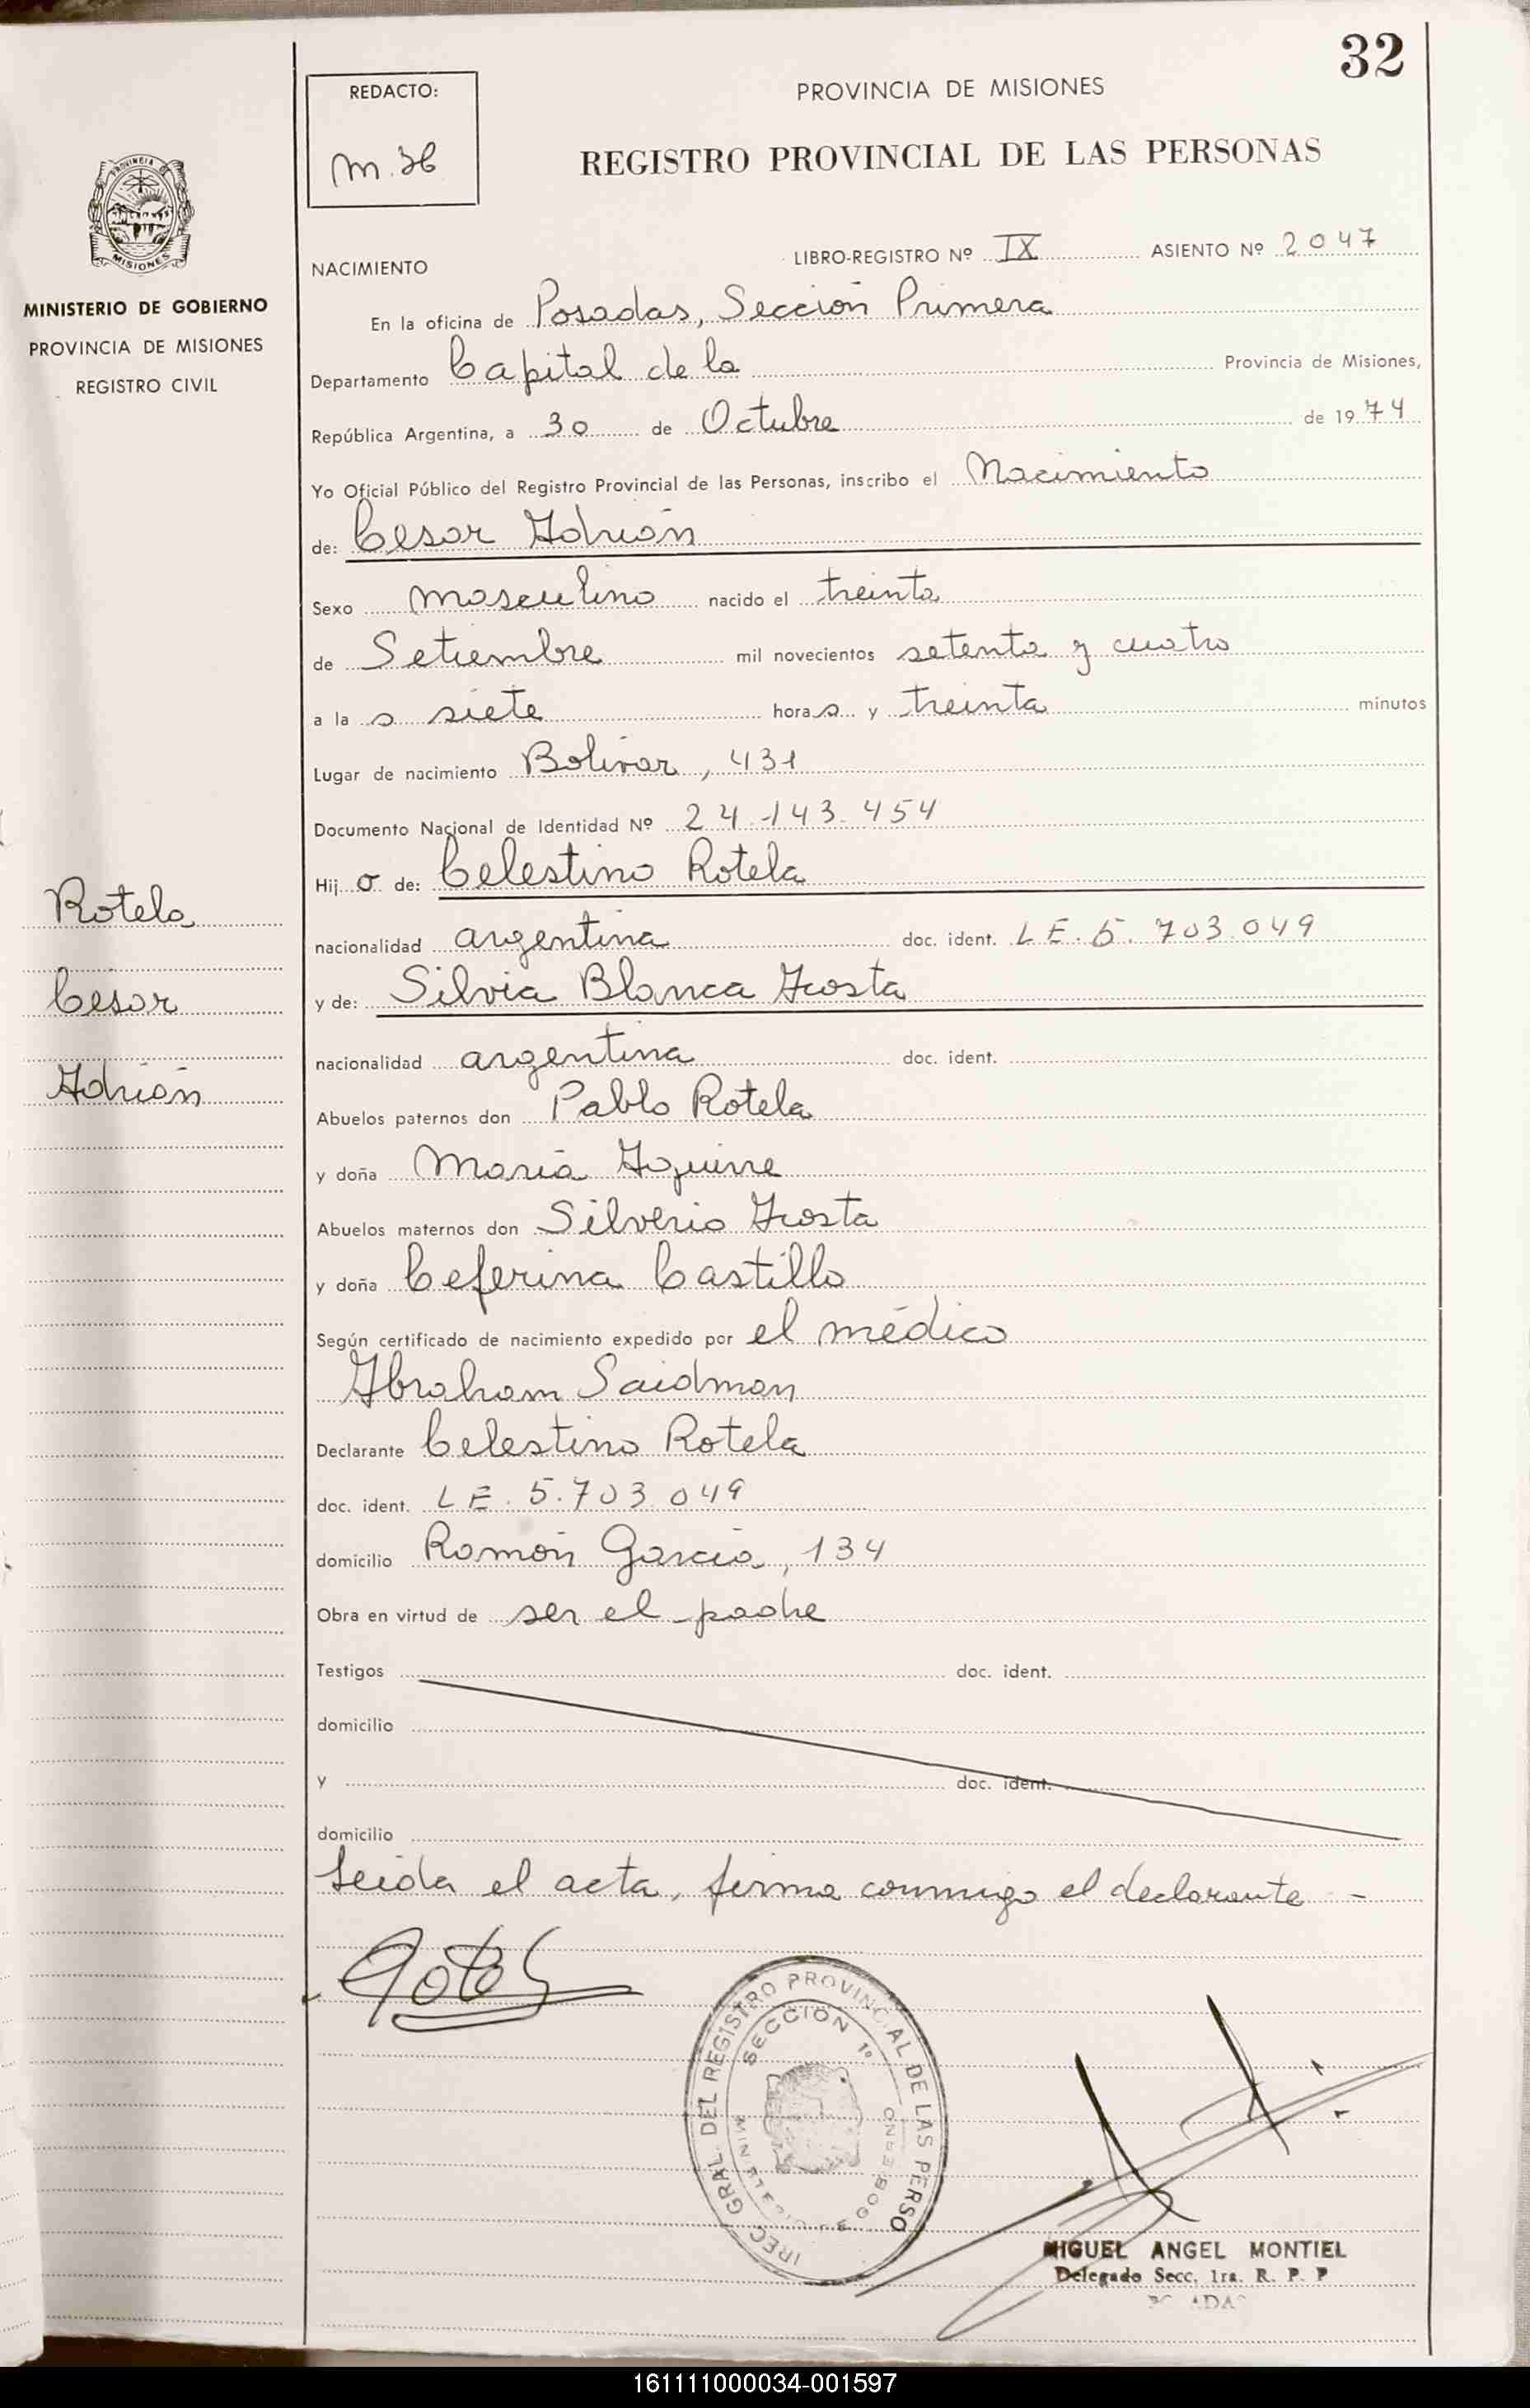 32
REDACTO:
PROVINCIA DE MISIONES
REGISTRO PROVINCIAL DE LAS PERSONAS
PROVINCIA
MISIONES
MINISTERIO DE GOBIERNO
PROVINCIA DE MISIONES
REGISTRO CIVIL
NACIMIENTO LIBRO-REGISTRO Nº IX ASIENTO Nº 2047
En la oficina de Posadas, Sección Primera
Departamento Capital de la Provincia de Misiones,
República Argentina, a 30 de Octubre de 1974
Yo Oficial Público del Registro Provincial de las Personas, inscribo el Nacimiento
de: Cesar Adrián
Sexo masculino nacido el treinta
de Setiembre mil novecientos setenta y cuatro
a las siete horas y treinta minutos
Lugar de nacimiento Bolívar, 431
Documento Nacional de Identidad Nº 24.143.454
Hijo de: Celestino Rotela
nacionalidad argentina doc. ident. L E. 5. 703 049
y de: Silvia Blanca Acosta
nacionalidad argentina doc. ident.
Abuelos paternos don Pablo Rotela
y doña María Aguirre
Abuelos maternos don Silverio Acosta
y doña Ceferina Castillo
Según certificado de nacimiento expedido por el médico
Abraham Saidman
Declarante Celestino Rotela
doc. ident. L E. 5.703 049
domicilio Ramón García, 134
Obra en virtud de ser el padre
Testigos doc. ident.
domicilio
y doc. ident.
domicilio
Leida el acta, firma conmigo el declarante -
Rotela
Cesar
Adrián
IREC GRAL. DEL REGISTRO PROVINCIAL DE LAS PERSO
SECCION 1º
GOBIERNO
MIGUEL ANGEL MONTIEL
Delegado Secc. 1ra. R. P. P
161111000034-001597